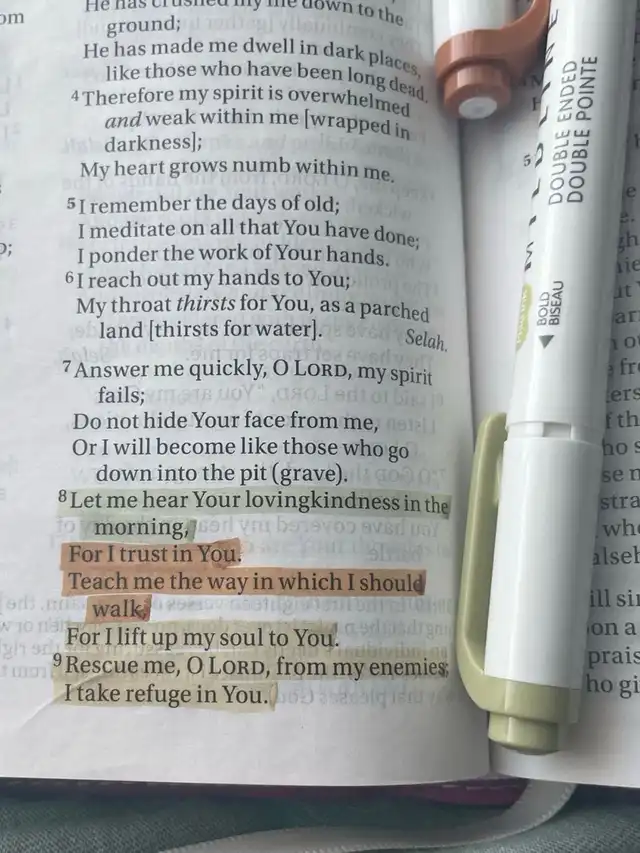 He has crushed my life down to the
ground;
He has made me dwell in dark places,
like those who have been long dead.
4 Therefore my spirit is overwhelmed
and weak within me [wrapped in
darkness];
My heart grows numb within me.
5 I remember the days of old;
I meditate on all that You have done;
I ponder the work of Your hands.
6 I reach out my hands to You;
My throat thirsts for You, as a parched
land [thirsts for water]. Selah.
7 Answer me quickly, O LORD, my spirit
fails;
Do not hide Your face from me,
Or I will become like those who go
down into the pit (grave).
8 Let me hear Your lovingkindness in the
morning,
For I trust in You.
Teach me the way in which I should
walk,
For I lift up my soul to You.
9 Rescue me, O LORD, from my enemies;
I take refuge in You.
MILDLINER
DOUBLE ENDED
DOUBLE POINTE
BOLD
BISEAU
5